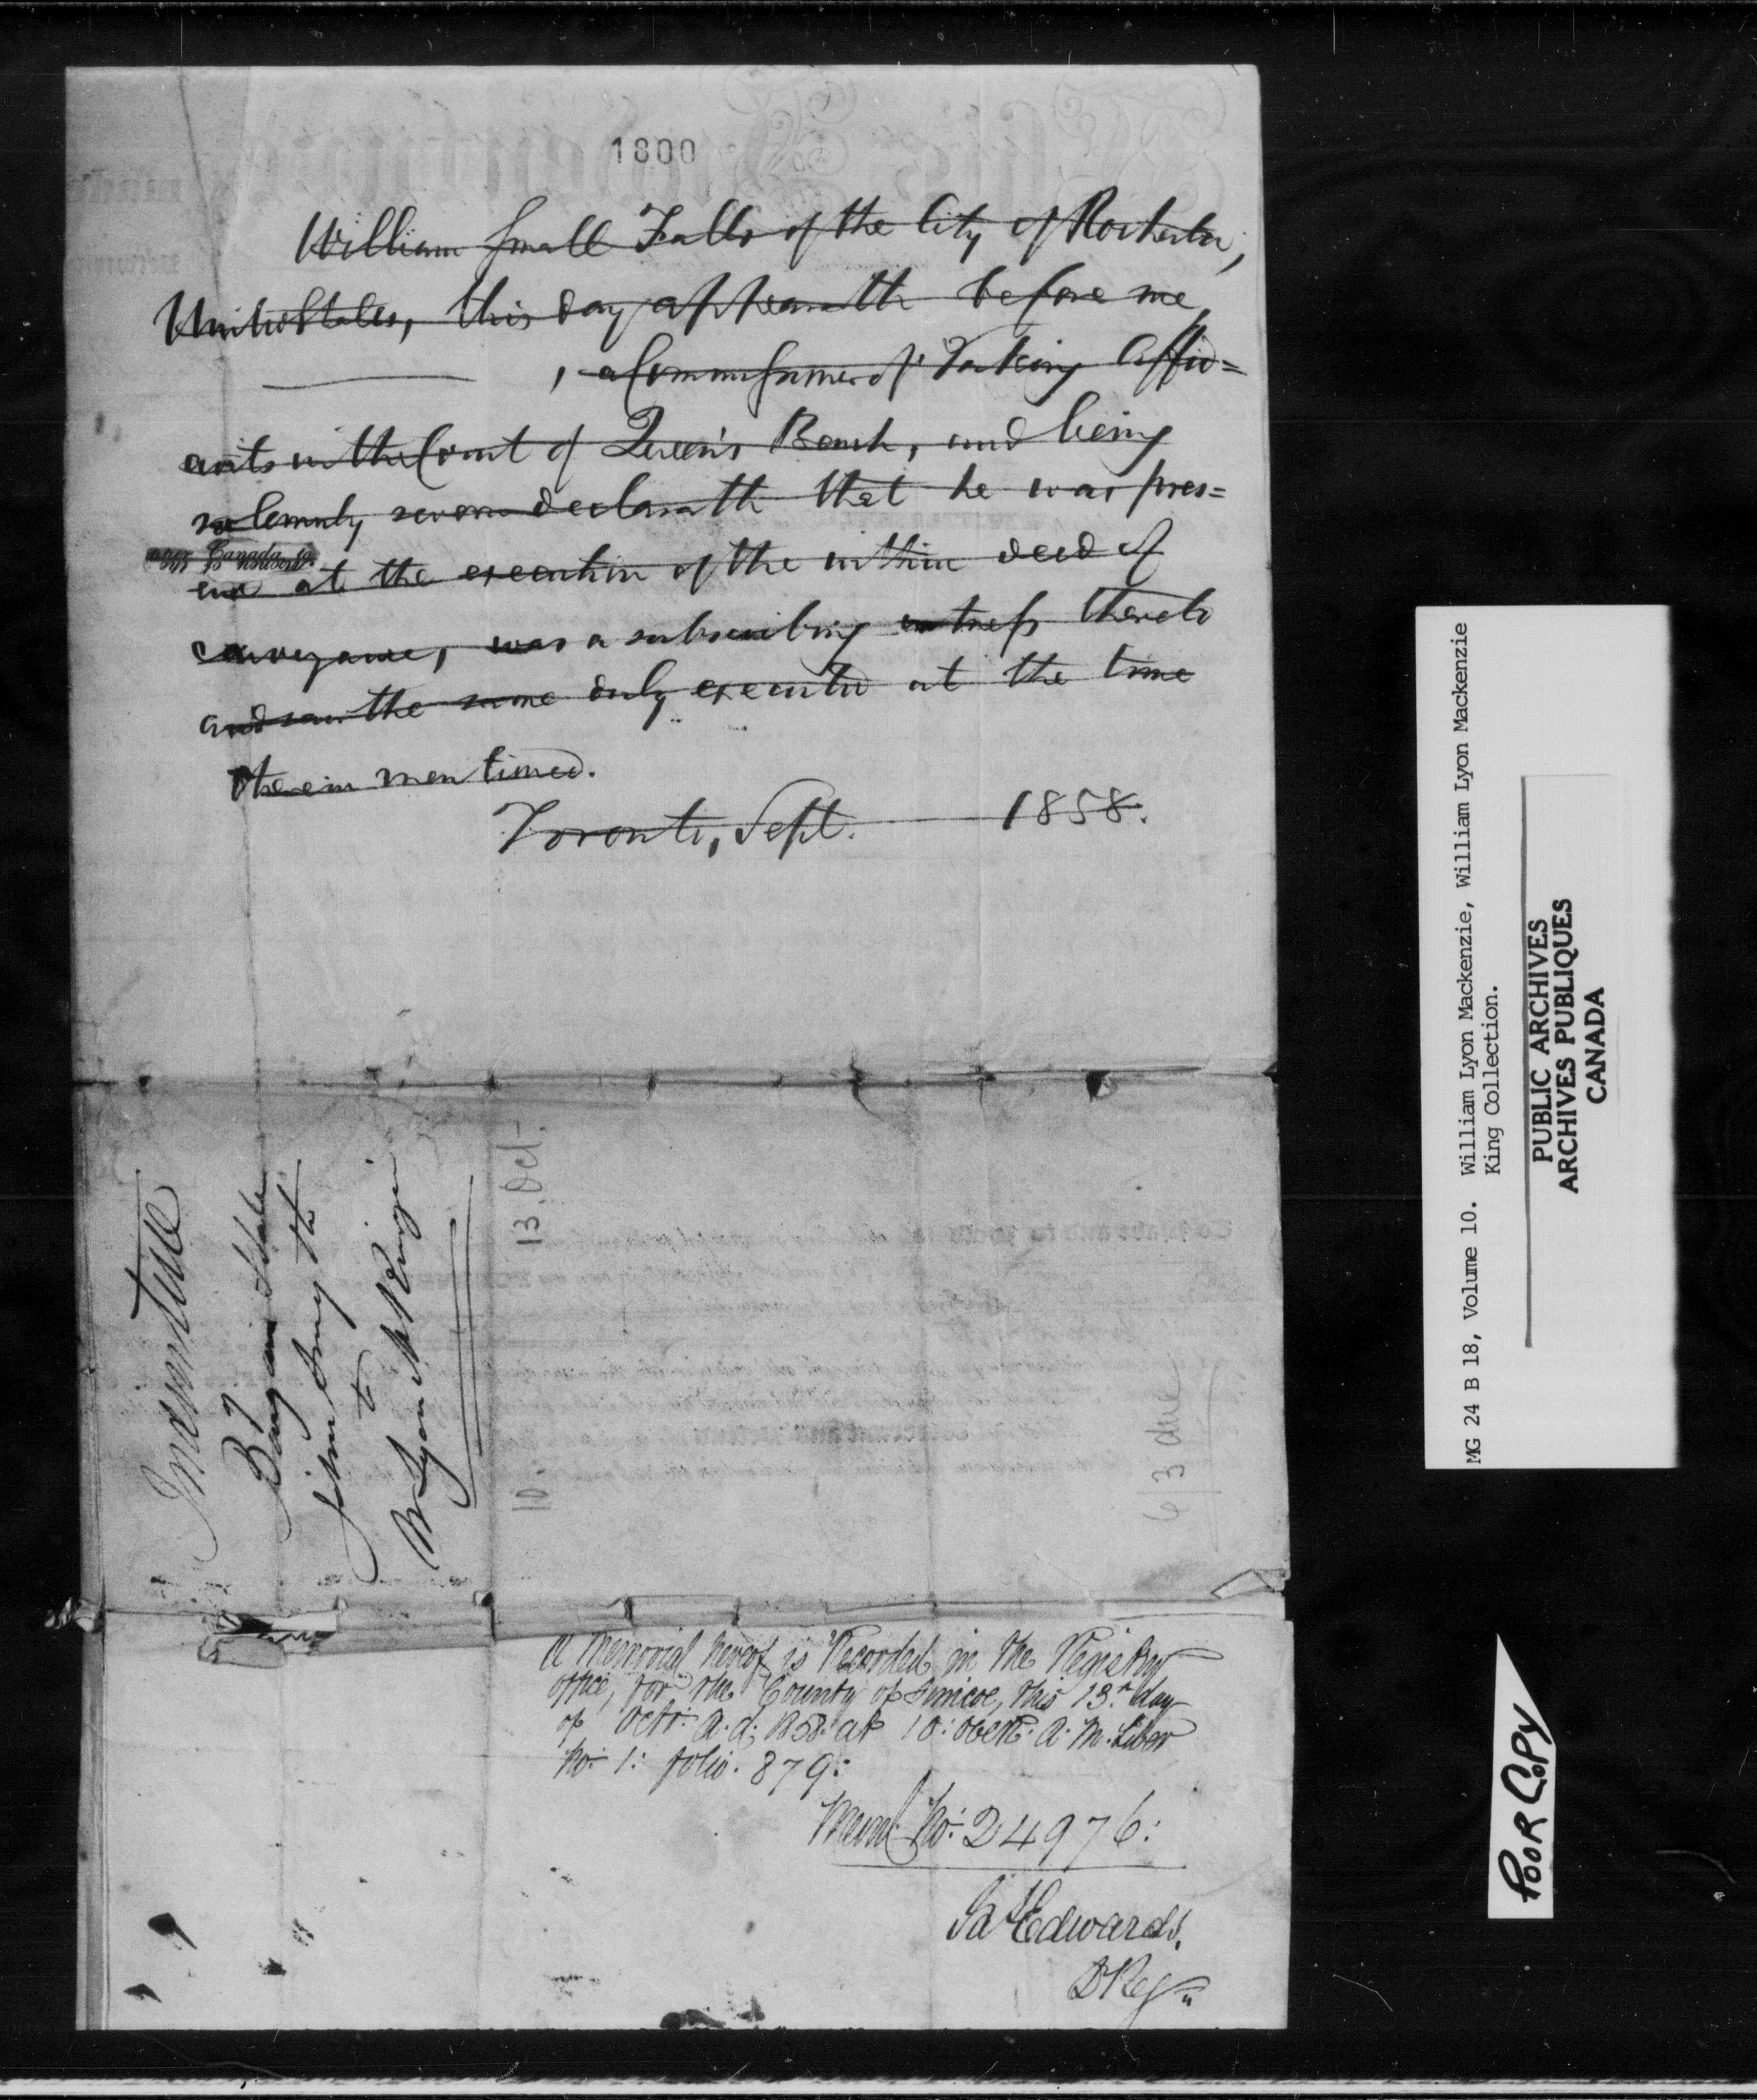 1800
William Small Falls of the City of Rochester,
United States, this day appeareth before me,
, a Commissioner for Taking Affid=
avits in the Court of Queen's Bench, and being
solemnly sworn declareth that he was pres=
ent at the execution of the within deed of
conveyance, was a subscribing witness thereto
and saw the same duly executed at the time
therein mentioned.
Toronto, Sept. 1858.
Indenture
Bargain & Sale
to
13. Oct.
10
6/3 due
A Memorial hereof is Recorded in the Registry
office, for the County of Simcoe, this 13th day
of Octr. A.d. 1858. at 10: oClk: A. M. Liber
No. 1: folio. 879:
Meml No: 24976:
Edwards.
D Reg
MG 24 B 18, Volume 10. William Lyon Mackenzie, William Lyon Mackenzie
King Collection.
PUBLIC ARCHIVES
ARCHIVES PUBLIQUES
CANADA
POOR COPY